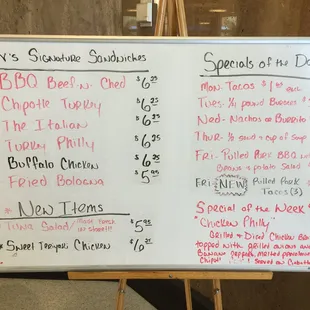 Signature Sandwiches
BBQ Beef n. Ched $6.25
Chipotle Turkey $6.25
The Italian $6.25
Turkey Philly $6.25
Buffalo Chicken $6.25
Fried Bologna $5.95
New Items
Tuna Salad $5.95
Sweet Teriyaki Chicken
Specials of the
Mon. Tacos
Tues. 1/2 pound Burgers
Wed- Nachos or Burrito
Thur. 1/2 sand & cup of soup
Fri- Pulled Pork BBQ
Beans & potato Salad
Fri NEW Pulled Pork
Tacos (3)
Special of the Week
"Chicken Philly"
Grilled & Diced Chicken
topped with grilled onions and
Banana peppers, melted
Chipotle served on